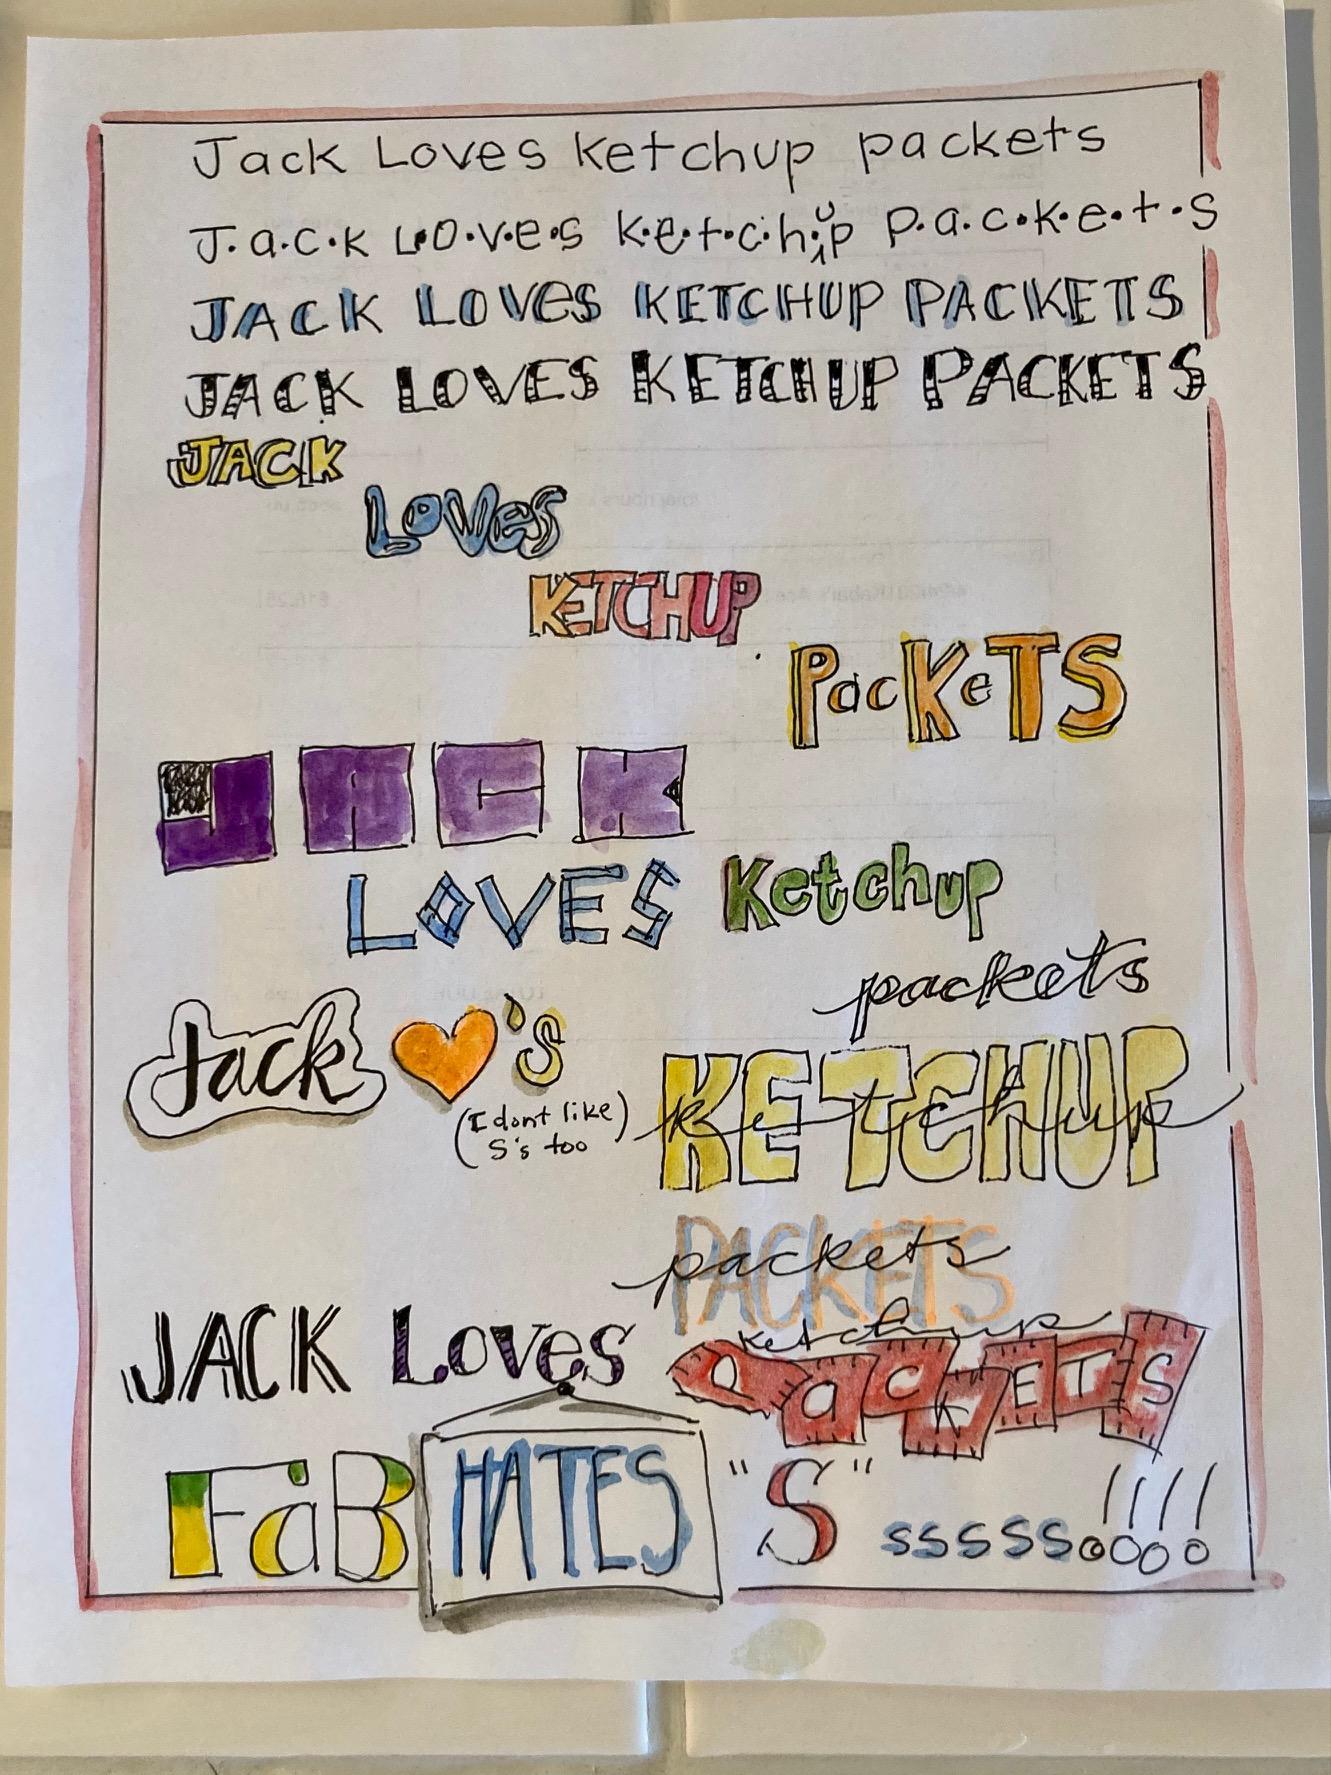 Jack Loves ketchup packets
J.a.c.k L.o.v.e.s k.e.t.c.h.u.p p.a.c.k.e.t.s
JACK LOVeS KETCHUP PACKETS
JACK LOVES KETCHUP PACKETS
JACK
LoVes
KETCHUP
PacKeTS
JACK
LOVES Ketchup
packets
Jack ♥'s
(I dont like)
S's too
KETCHUP
ketchup
PACKETS
packets
JACK Loves
ketchup
PacKETS
FaB HATES "S" sssss!!!!